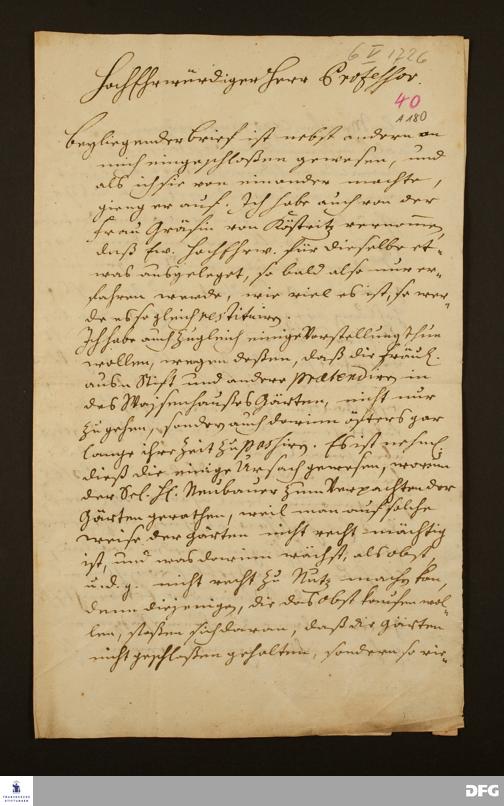 6 V 1726
HochEhrwürdiger Herr Professor.
40
A 180
beyliegender brief ist nebst andern an
mich eingeschloßen gewesen, und
als ich sie von einander machte,
gieng er auf. Ich habe auch von der
Frau Gräfin von Köstritz vernommen,
daß Ew. HochEhrw. für dieselbe et-
was ausgeleget, so bald also nur er-
fahren werde, wie viel es ist, so wer-
de es so gleich restituiren.
Ich habe auch zugleich einige Vorstellung thun
wollen, wegen deßen, daß die Fräul.
aus Stift und andere prætendiren in
des Waysenhauses Gärten, nicht nur
zu gehen, sondern auch darinn öfters gar
lange ihre Zeit zu passiren. Es ist nehml.
dieß die einige Ursach gewesen, warum
der Sel. H. Neubauer zum Verpachten der
Gärten gerathen, weil man auf solche
weise der Gärten nicht recht mächtig
ist, und was darinn wächst, als obst
u. d. g. nicht recht zu Nutz machen kan,
denn diejenigen, die das Obst kaufen wol-
len, stoßen sich daran, daß die Gärten
nicht geschloßen gehalten, sondern so vie-
FRANCKESCHE
STIFTUNGEN
DFG